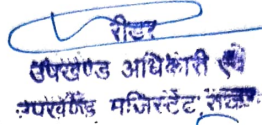 रीडर
उपखण्ड अधिकारी एवं
उपखण्ड मजिस्टेट